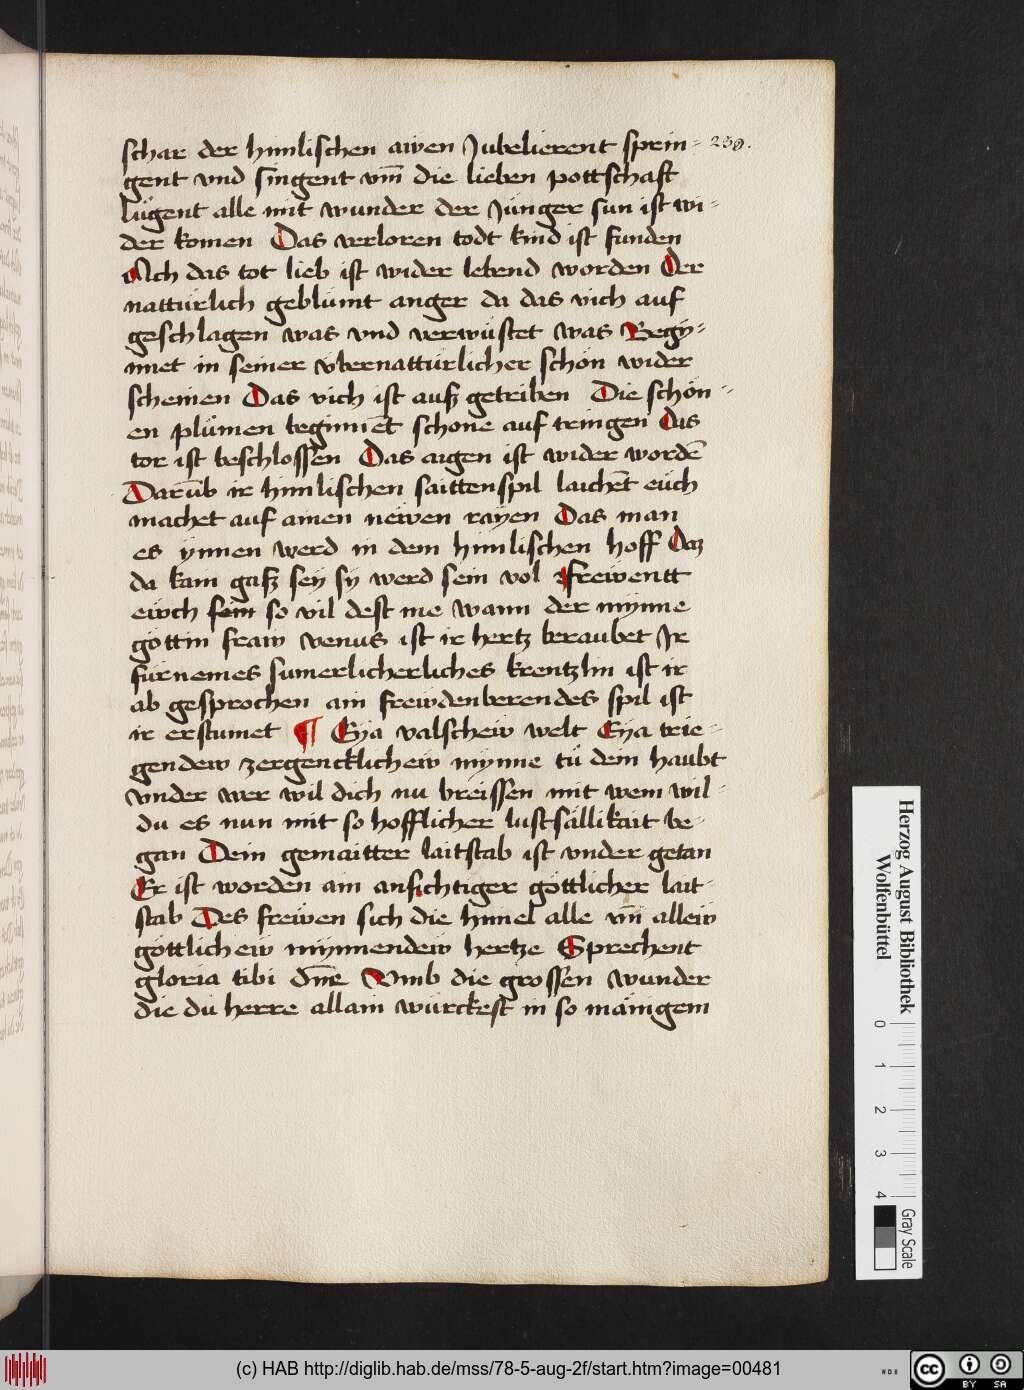 schar der himlischen awen Jubelierent sprin= 239.
gent vnd singent vm̄ die lieben pottschaft
lu̇gent alle mit wunder der Ju̇nger sun ist wi=
der komen Das verloren todt kind ist funden
Ach das tot lieb ist wider lebend worden Der
nattu̇rlich geblu̇mt anger da das vich auf
geschlagen was vnd verwu̇stet was Begy=
nnet in seiner v̇bernattu̇rlicher scho̍n wider
scheinen Das vich ist auß getriben Die scho̍n=
en plu̍men beginnēt schone auf tringen Das
tor ist beschlossen Das aigen ist wider wordē
Darūb ir himlischen saittenspil laichēt eu̇ch
machet auf ainen newen rayen Das man
es ynnen werd in dem himlischen hoff Daz
da kain gaß sey sy werd sein vol Frewentt
ewch sein so vil dest me wann der mynne
go̍ttin fraw venus ist ir hertz beraubet Ir
fu̇rnemes sumerlicherliches krentzlin ist ir
ab gesprochen ain frewdenberendes spil ist
ir erstumet ¶ Eya valschew welt Eya trie=
gendew zergencklichew mynne tu̍ dein haubt
vnder wer wil dich nu breissen mit wem wil=
du es nun mit so hofflicher lustsa̍llikait be=
gan Dein gemaitter laitstab ist vnder getan
Er ist worden ain ansichtiger go̍ttlicher lait=
stab Des frewen sich die himel alle vn̄ allew
go̍ttlichew mynnendew hertze Sprechent
gloria tibi dn̄e Vmb die grossen wunder
die du herre allain wu̇rckest in so mänigem
Herzog August Bibliothek
Wolfenbüttel
0 1 2 3 4
Gray Scale
(c) HAB http://diglib.hab.de/mss/78-5-aug-2f/start.htm?image=00481
cc BY SA